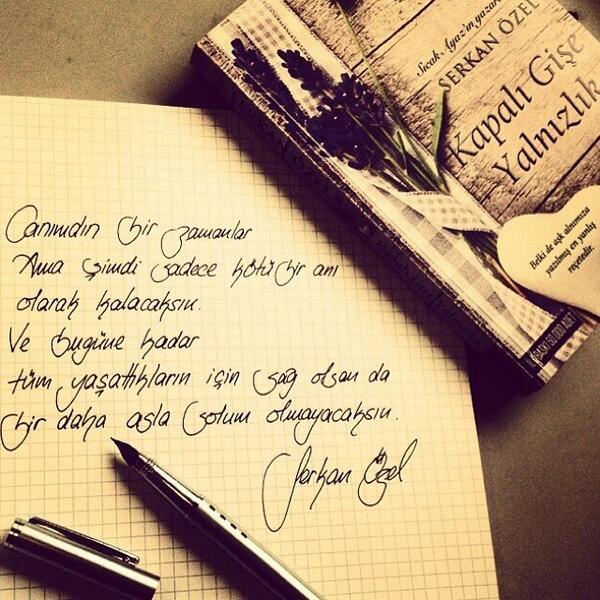 Canımdın bir zamanlar
Ama şimdi sadece kötü bir anı
olarak kalacaksın.
Ve bugüne kadar
tüm yaşattıkların için sağ olsan da
bir daha asla solum olmayacaksın.
Serkan Özel
Sıcak Ayaz'ın yazarı
SERKAN ÖZEL
Kapalı Gişe
Yalnızlık
Belki de aşk alnımıza
yazılmış en yanlış
reçetedir.
BASKI 50.000 ADET